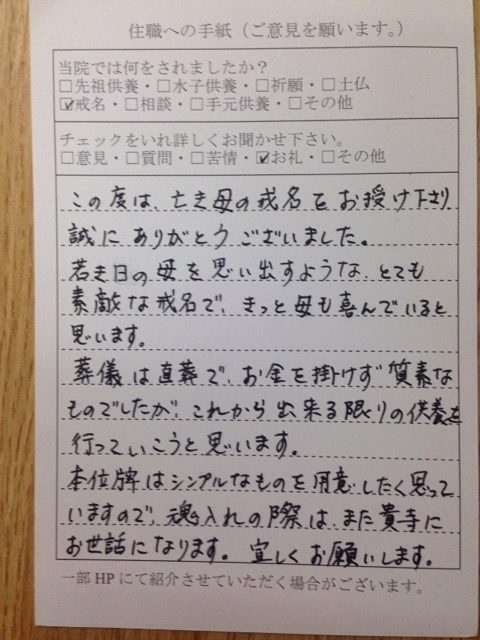 住職への手紙（ご意見を願います。）
当院では何をされましたか？
□先祖供養・□水子供養・□祈願・□土仏
☑戒名・□相談・□手元供養・□その他
チェックをいれ詳しくお聞かせ下さい。
□意見・□質問・□苦情・☑お礼・□その他
この度は、亡き母の戒名をお授け下さり
誠にありがとうございました。
若き日の母を思い出すような、とても
素敵な戒名で、きっと母も喜んでいると
思います。
葬儀は直葬で、お金を掛けず質素な
ものでしたが、これから出来る限りの供養を
行っていこうと思います。
本位牌はシンプルなものを用意したく思って
いますので、魂入れの際は、また貴寺に
お世話になります。宜しくお願いします。
一部HPにて紹介させていただく場合がございます。